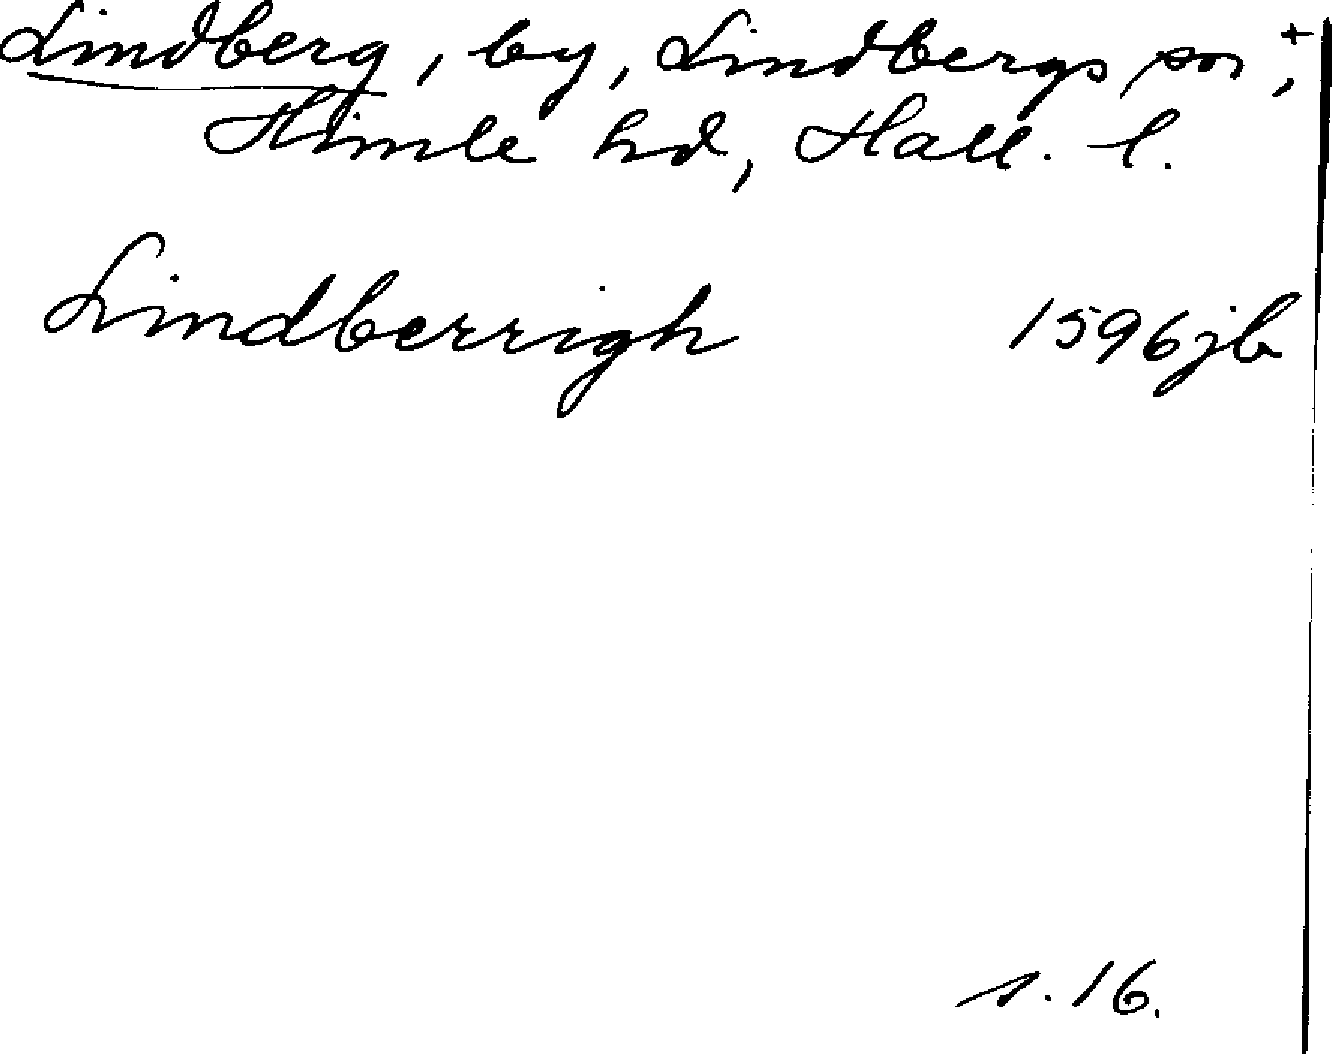 Lindberg, by, Lindbergs sn, +
Himle hd, Hall. l.
Lindberrigh 1596 jb
s. 16.